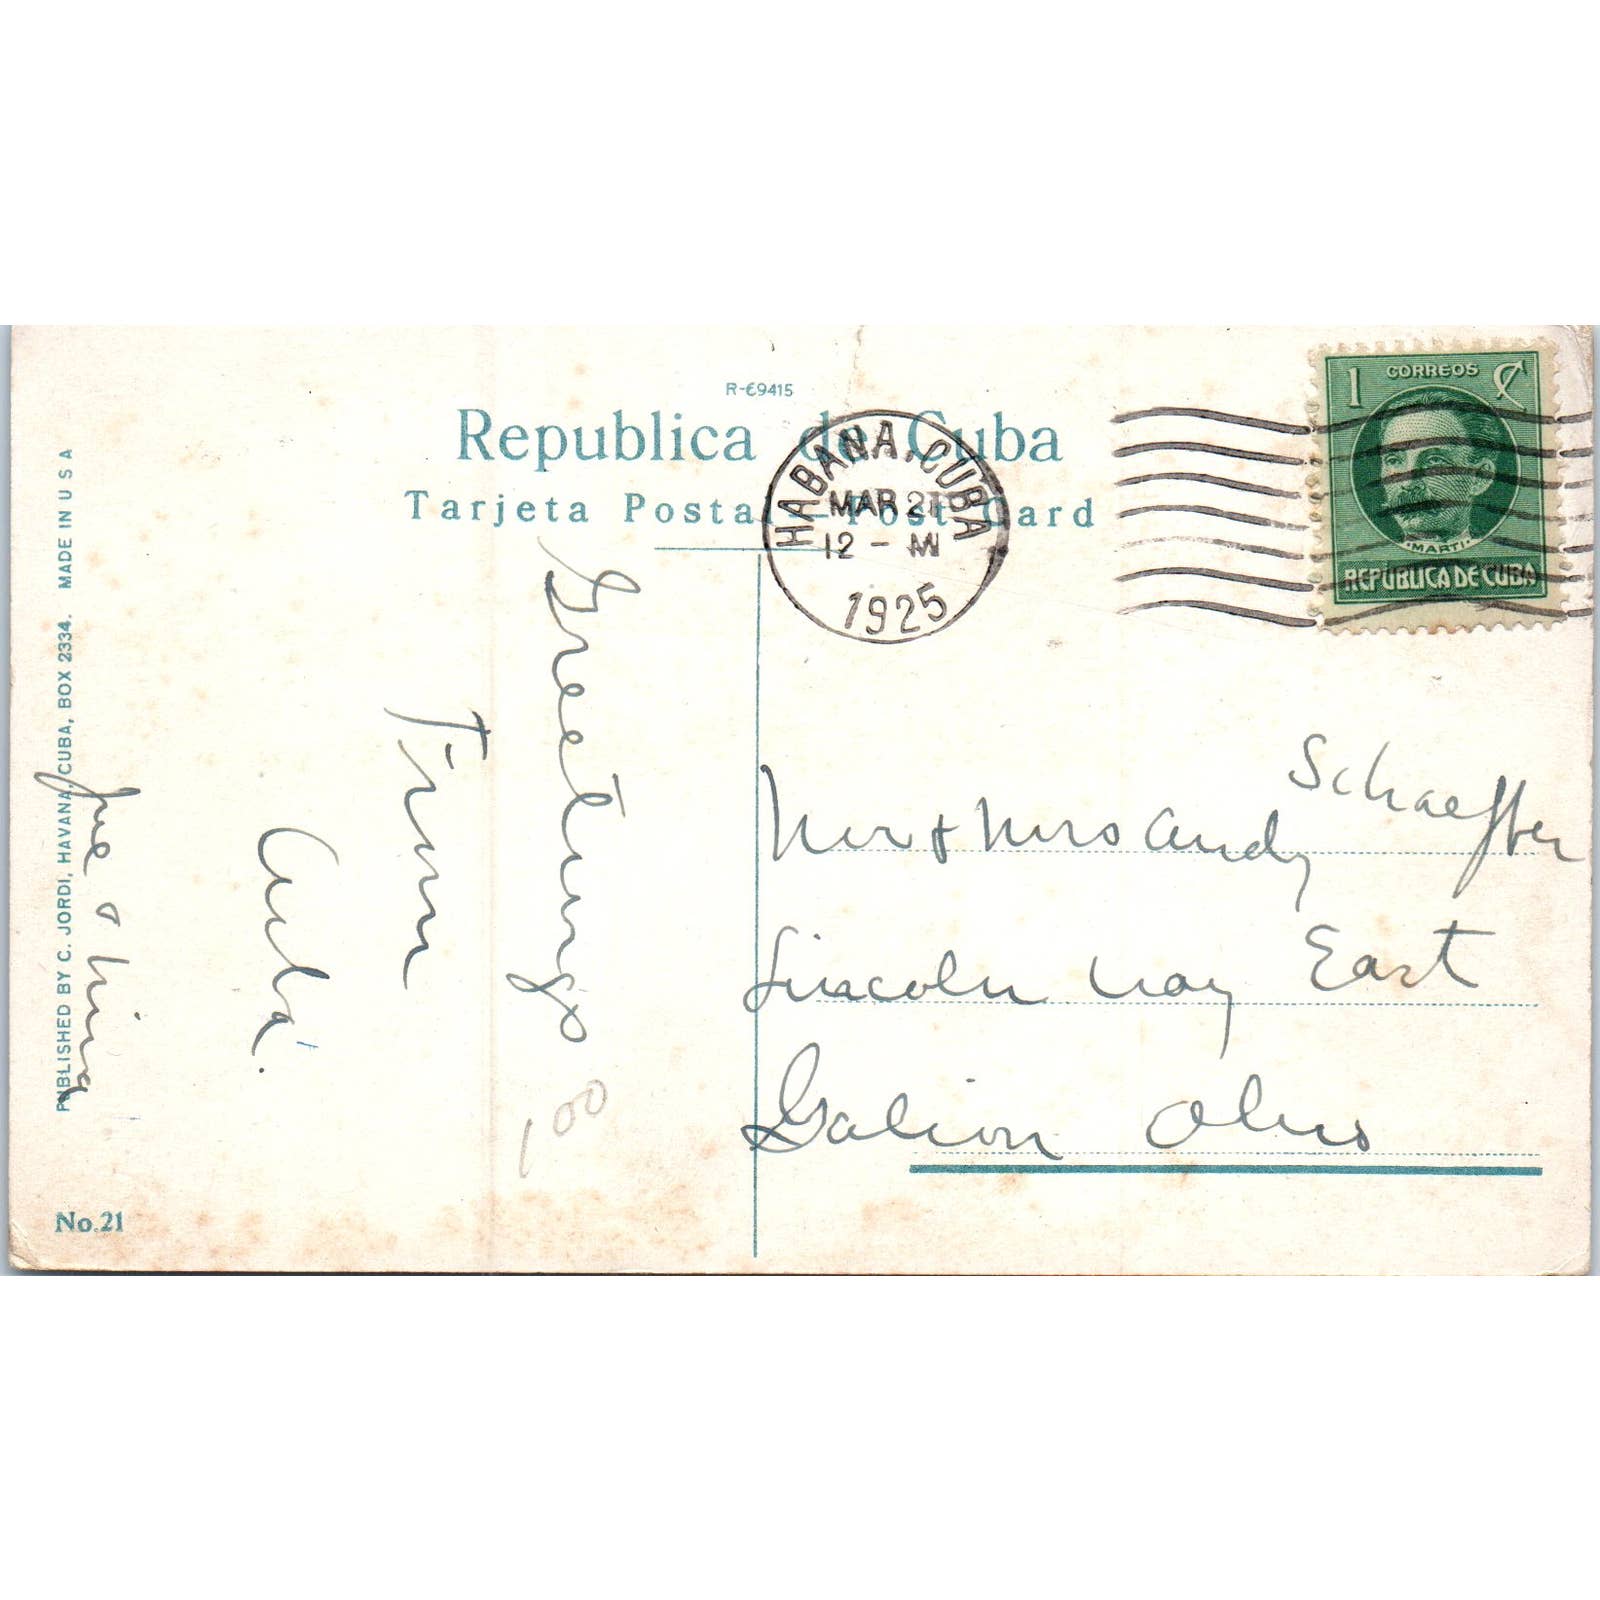 R-69415
Republica de Cuba
Tarjeta Postal — Post Card
HABANA, CUBA
MAR 21
12 - M
1925
1 CORREOS ¢
MARTI
REPUBLICA DE CUBA
Greetings
From
Cuba.
Joe & Nina
100
Mr & Mrs Andy Schaeffer
Lincoln Way East
Galion Ohio
PUBLISHED BY C. JORDI, HAVANA, CUBA, BOX 2334. MADE IN U S A
No.21